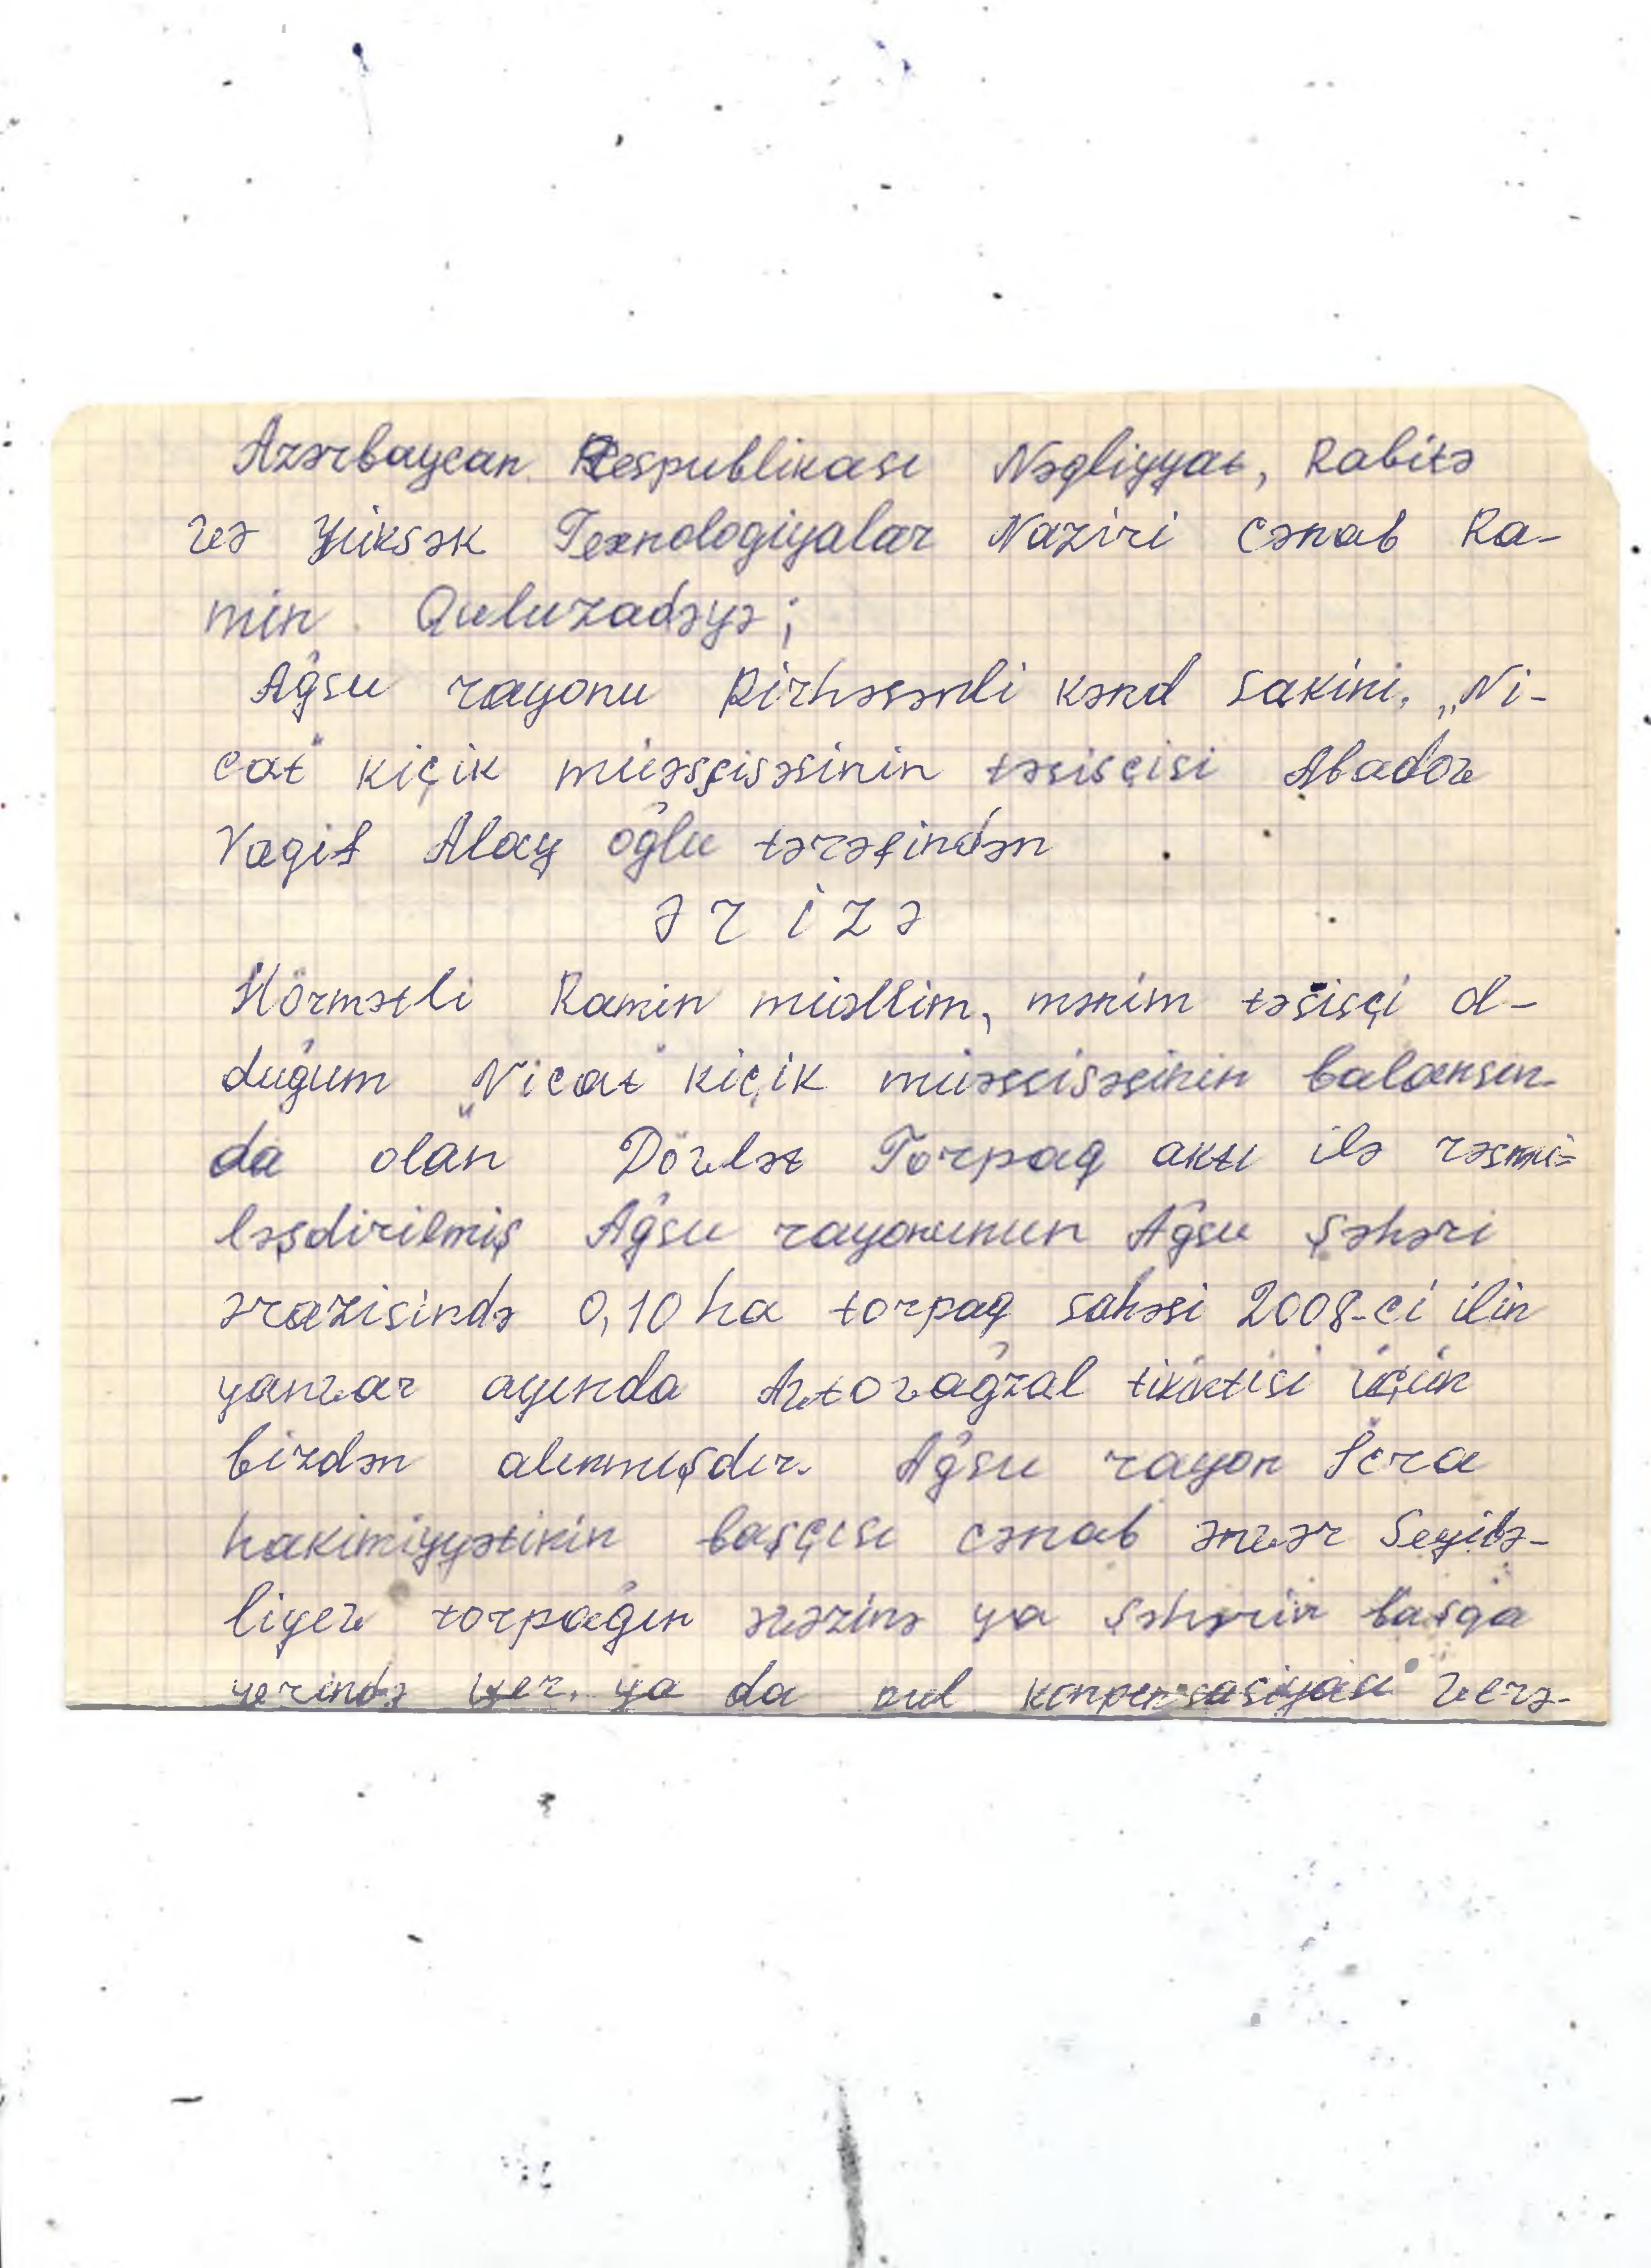 Azərbaycan Respublikası Nəqliyyat, Rabitə
və Yüksək Texnologiyalar Naziri Cənab Ra-
min Quluzadəyə;
Ağsu rayonu Pirhəsənli kənd sakini, „Ni-
cat" kiçik müəssisəsinin təsisçisi Abadov
Vaqif Alay oğlu tərəfindən
ə r i z ə
Hörmətli Ramin müəllim, mənim təsisçi ol-
duğum „Nicat" kiçik müəssisəsinin balansın-
da olan Dövlət Torpaq aktı ilə rəsmi-
ləşdirilmiş Ağsu rayonunun Ağsu şəhəri
ərazisində 0,10 ha torpaq sahəsi 2008-ci ilin
yanvar ayında Avtovağzal tikintisi üçün
bizdən alınmışdır. Ağsu rayon İcra
hakimiyyətinin başçısı cənab Ənvər Seyidə-
liyev torpağın əvəzinə ya şəhərin başqa
yerində yer, ya da pul konpensasiyası verə-